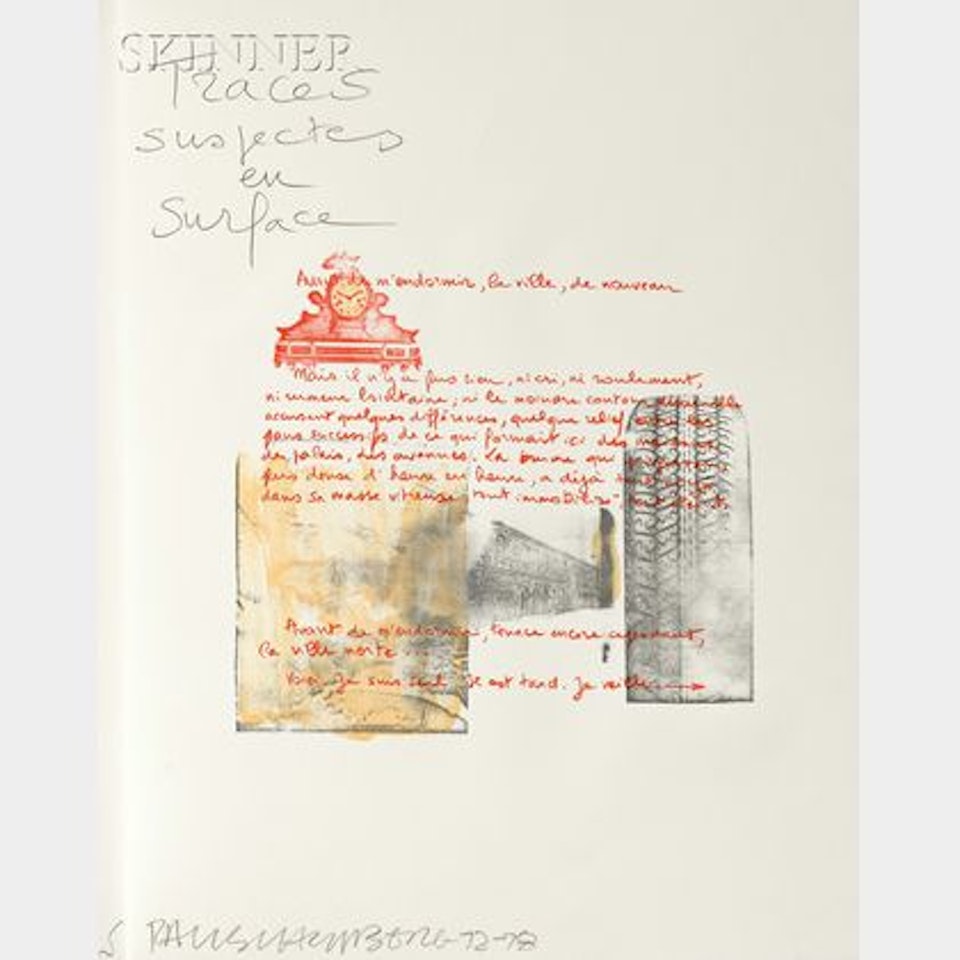 SKINNER
Traces
suspectes
en
Surface
Avant de m'endormir, la ville, de nouveau
Mais il n'y a plus rien, ni cri, ni roulement,
ni rumeur lointaine; ni le moindre contour
accusent quelques différences, quelque relief, entre les
pans successifs de ce qui formait ici des maisons
des palais, des avenues. La brume qui
plus dense d'heure en heure, a déjà
dans sa masse vitreuse tout immobilisé
Avant de m'endormir, tenace encore cependant,
la ville morte ...
Voici. Je suis seul. Il est tard. Je veille
RAUSCHENBERG 72-78